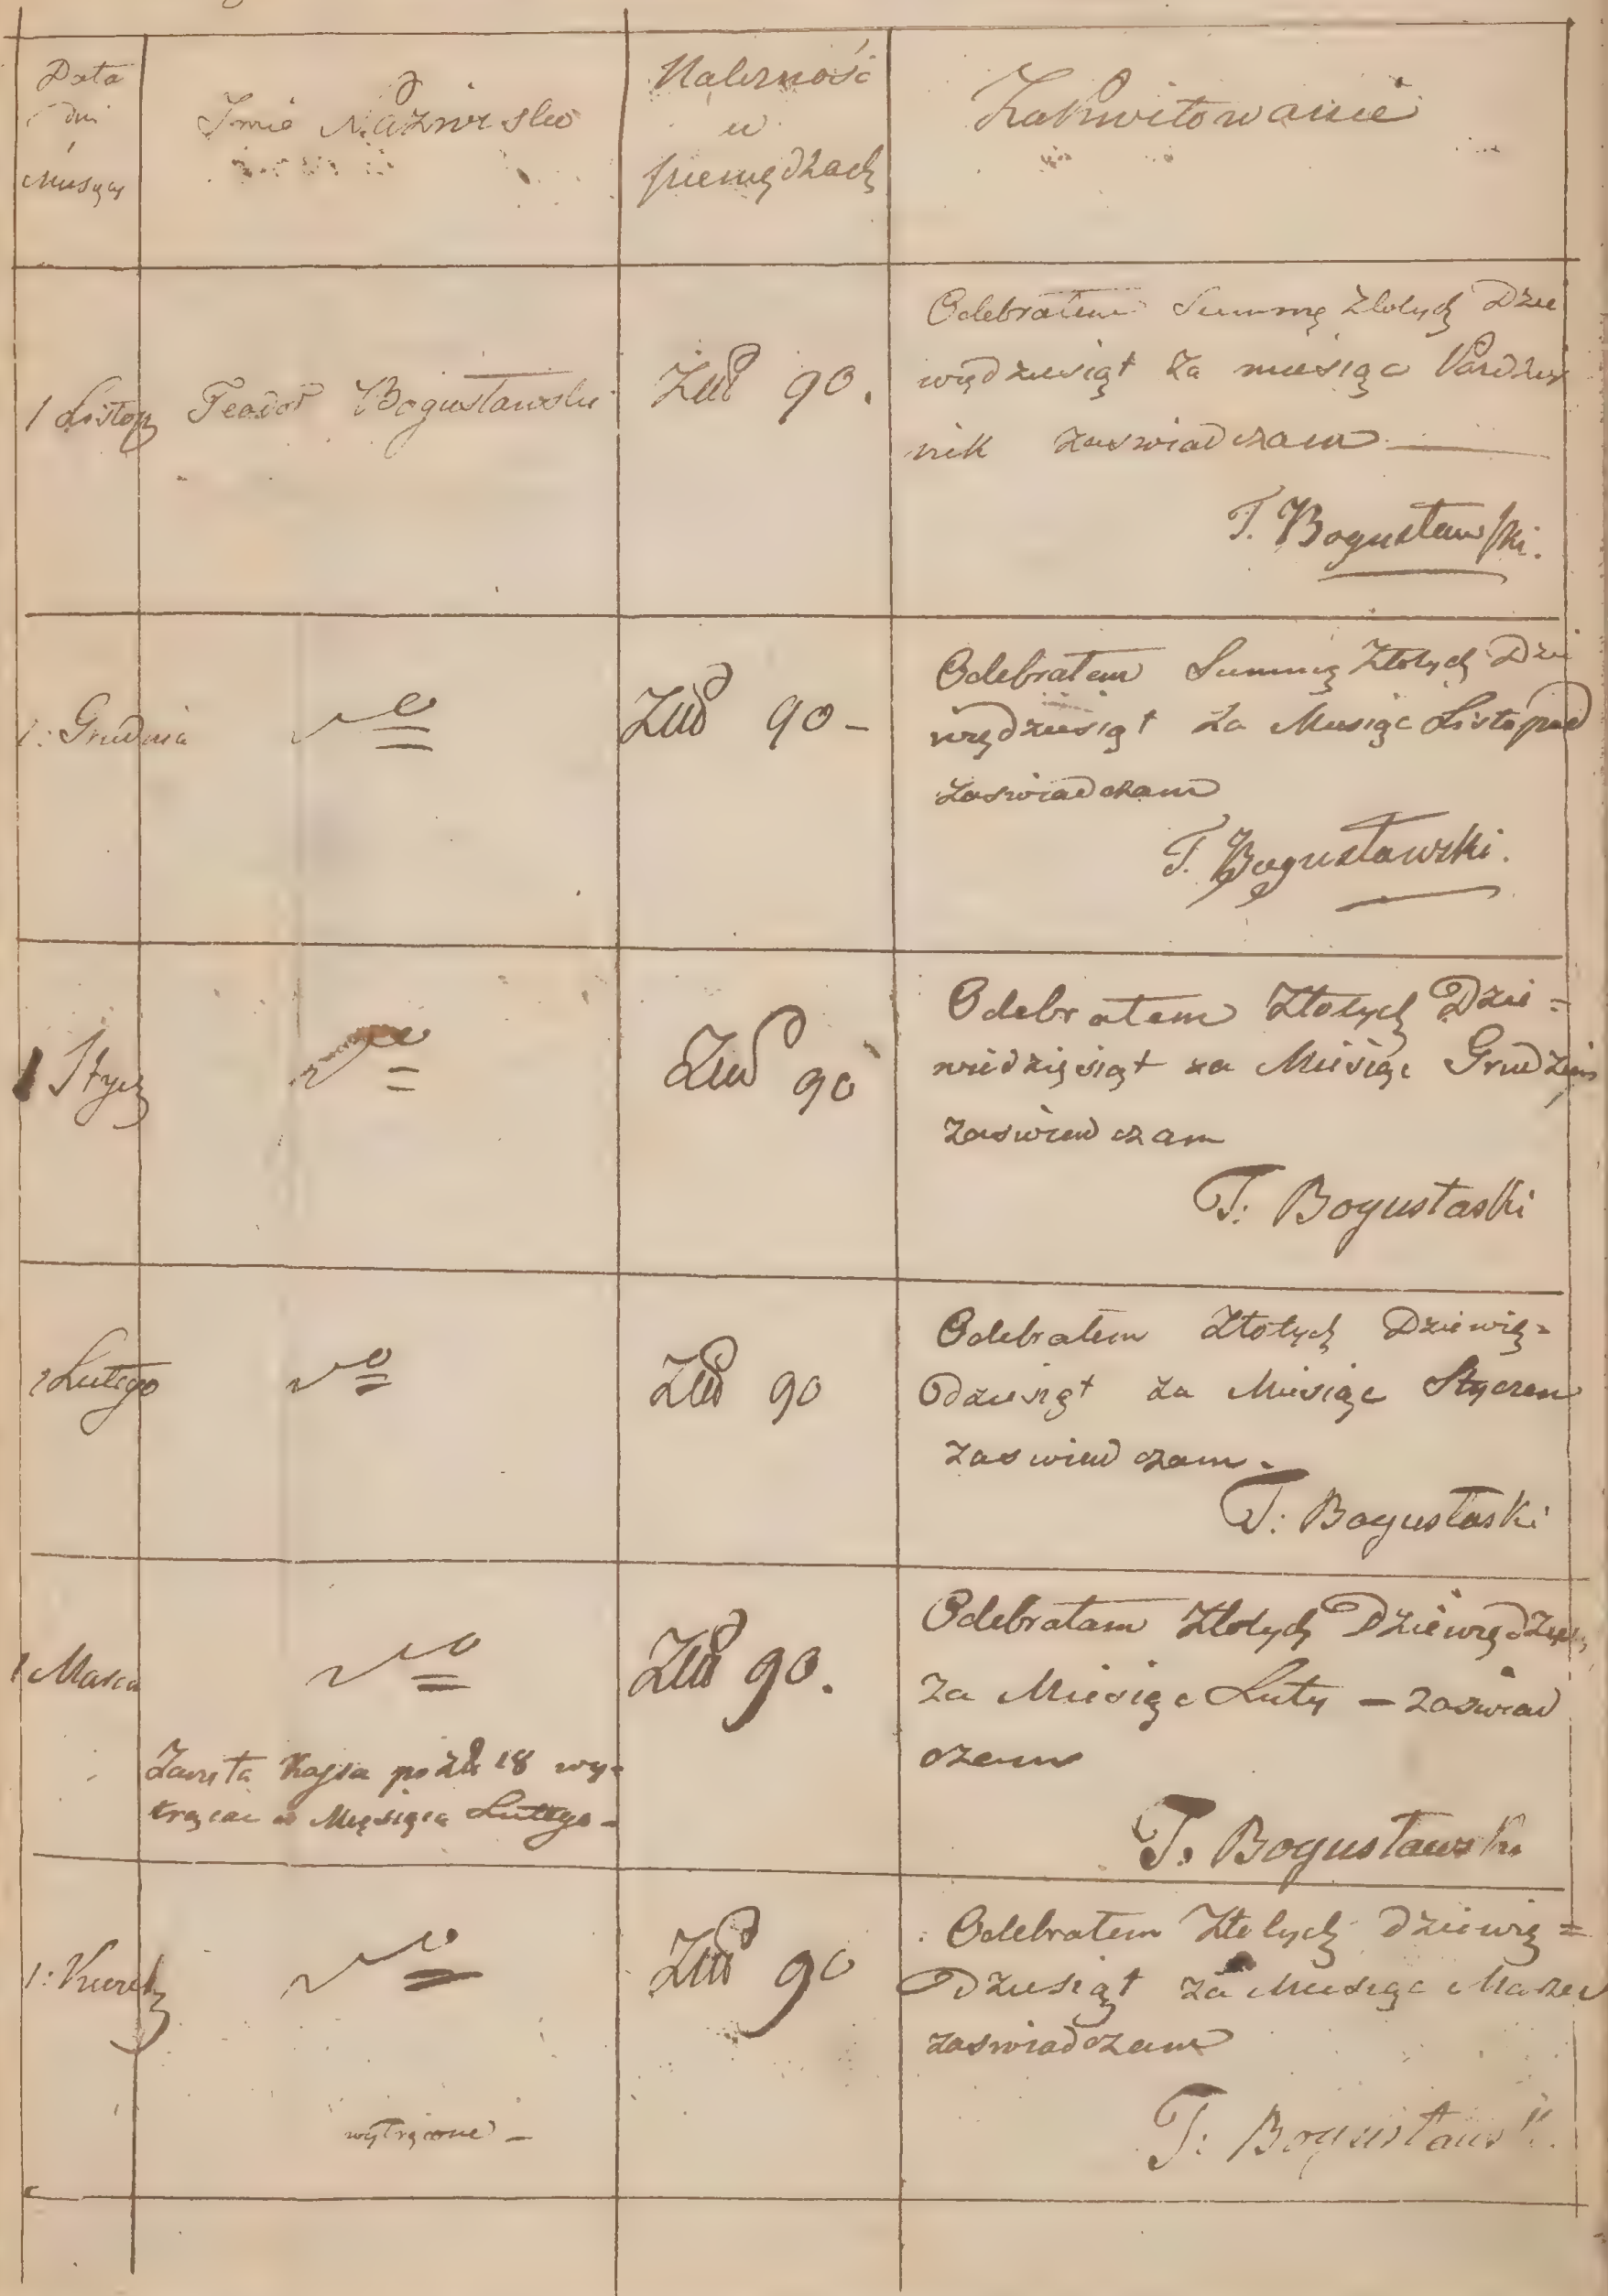 Data
dni
Miesęcy
Imie Nazwisko
Należność
w
pieniędzach
Zakwitowanie
1 Listop
Teodor Bogusławski
Złł 90.
Odebrałem Summę Złotych Dzie
więdziesiąt za miesiąc Paździer
nik zaswiadczam
T. Bogusławski.
1: Grudnia
Złł 90 -
Odebrałem Summę Złotych Dzie
więdziesiąt za Miesiąc Listopad
zaswiadczam
T. Bogusławski.
1 Stycz
Złł 90
Odebrałem Złotych Dzie =
wiedzięsiąt za Miesiąc Grudzień
zaswiadczam
T: Bogusłaski
1 Lutego
Złł 90
Odebrałem Złotych Dziewię =
Dziesiąt za Miesiąc Styczeń
zaswiadczam -
T: Bogusłaski
1 Marca
Złł 90.
Odebrałam Złotych Dziewiędzies
za Miesiąc Luty - zaswiad
czam
Kassa po Złł 18 wy-
trącać w Mięsiącu Lutego -
T. Bogusławski
1: Kwiet
Złł 90
Odebrałem Złotych dziewię =
Dziesiąt za Miesiąc Marzec
zaswiadczam
wytrącone -
T: Bogusławski